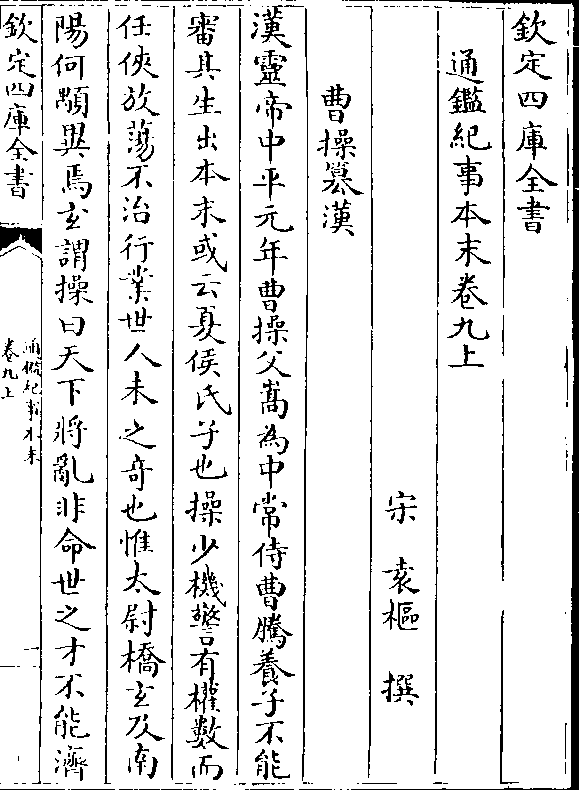 欽定四庫全書
通鑑紀事本末卷九上
宋 袁樞 撰
曹操簒漢
漢靈帝中平元年曹操父嵩為中常侍曹騰養子不能
審其生出本末或云夏侯氏子也操少機警有權數而
任俠放蕩不治行業世人未之奇也惟太尉橋玄及南
陽何顒異焉玄謂操曰天下將亂非命世之才不能濟
欽定四庫全書
通鑑紀事本末
卷九上